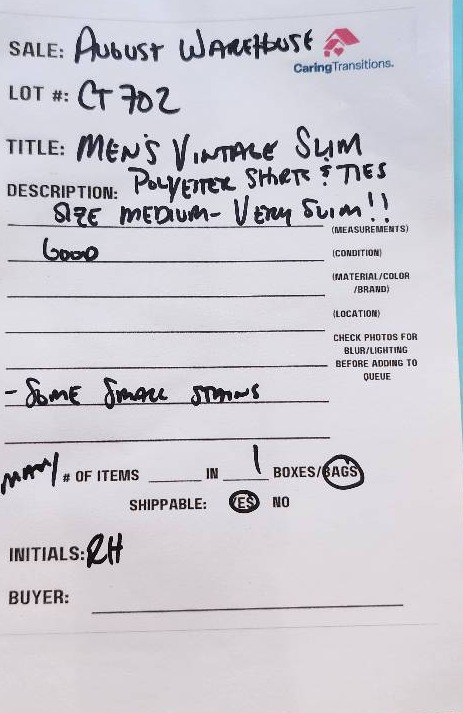 SALE: AUGUST WAREHOUSE
CaringTransitions.
LOT #: CT 702
TITLE: MEN'S VINTAGE SLIM
DESCRIPTION: POLYESTER SHIRTS & TIES
SIZE MEDIUM - VERY SLIM!!
(MEASUREMENTS)
GOOD (CONDITION)
(MATERIAL/COLOR
/BRAND)
(LOCATION)
CHECK PHOTOS FOR
BLUR/LIGHTING
BEFORE ADDING TO
QUEUE
- SOME SMALL STAINS
MANY # OF ITEMS ____ IN 1 BOXES/BAGS
SHIPPABLE: YES NO
INITIALS: RH
BUYER: